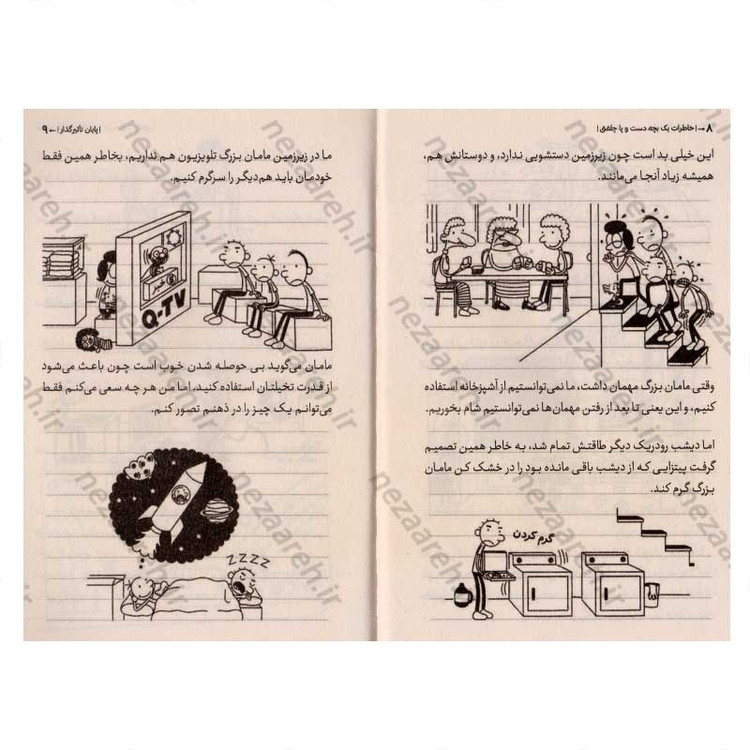 ۸ → | خاطرات یک بچه دست و پا چلفتی |
این خیلی بد است چون زیرزمین دستشویی ندارد، و دوستانش هم،
همیشه زیاد آنجا می‌مانند.
وقتی مامان بزرگ مهمان داشت، ما نمی‌توانستیم از آشپزخانه استفاده
کنیم، و این یعنی تا بعد از رفتن مهمان‌ها نمی‌توانستیم شام بخوریم.
اما دیشب رودریک دیگر طاقتش تمام شد، به خاطر همین تصمیم
گرفت پیتزایی که از دیشب باقی مانده بود را در خشک کن مامان
بزرگ گرم کند.
گرم کردن
| پایان تأثیرگذار | ← ۹
ما در زیرزمین مامان بزرگ تلویزیون هم نداریم، بخاطر همین فقط
خودمان باید هم‌دیگر را سرگرم کنیم.
خبر
Q-TV
مامان می‌گوید بی حوصله شدن خوب است چون باعث می‌شود
از قدرت تخیلتان استفاده کنید، اما من هر چه سعی می‌کنم فقط
می‌توانم یک چیز را در ذهنم تصور کنم.
ZZZZ
nezaareh.ir